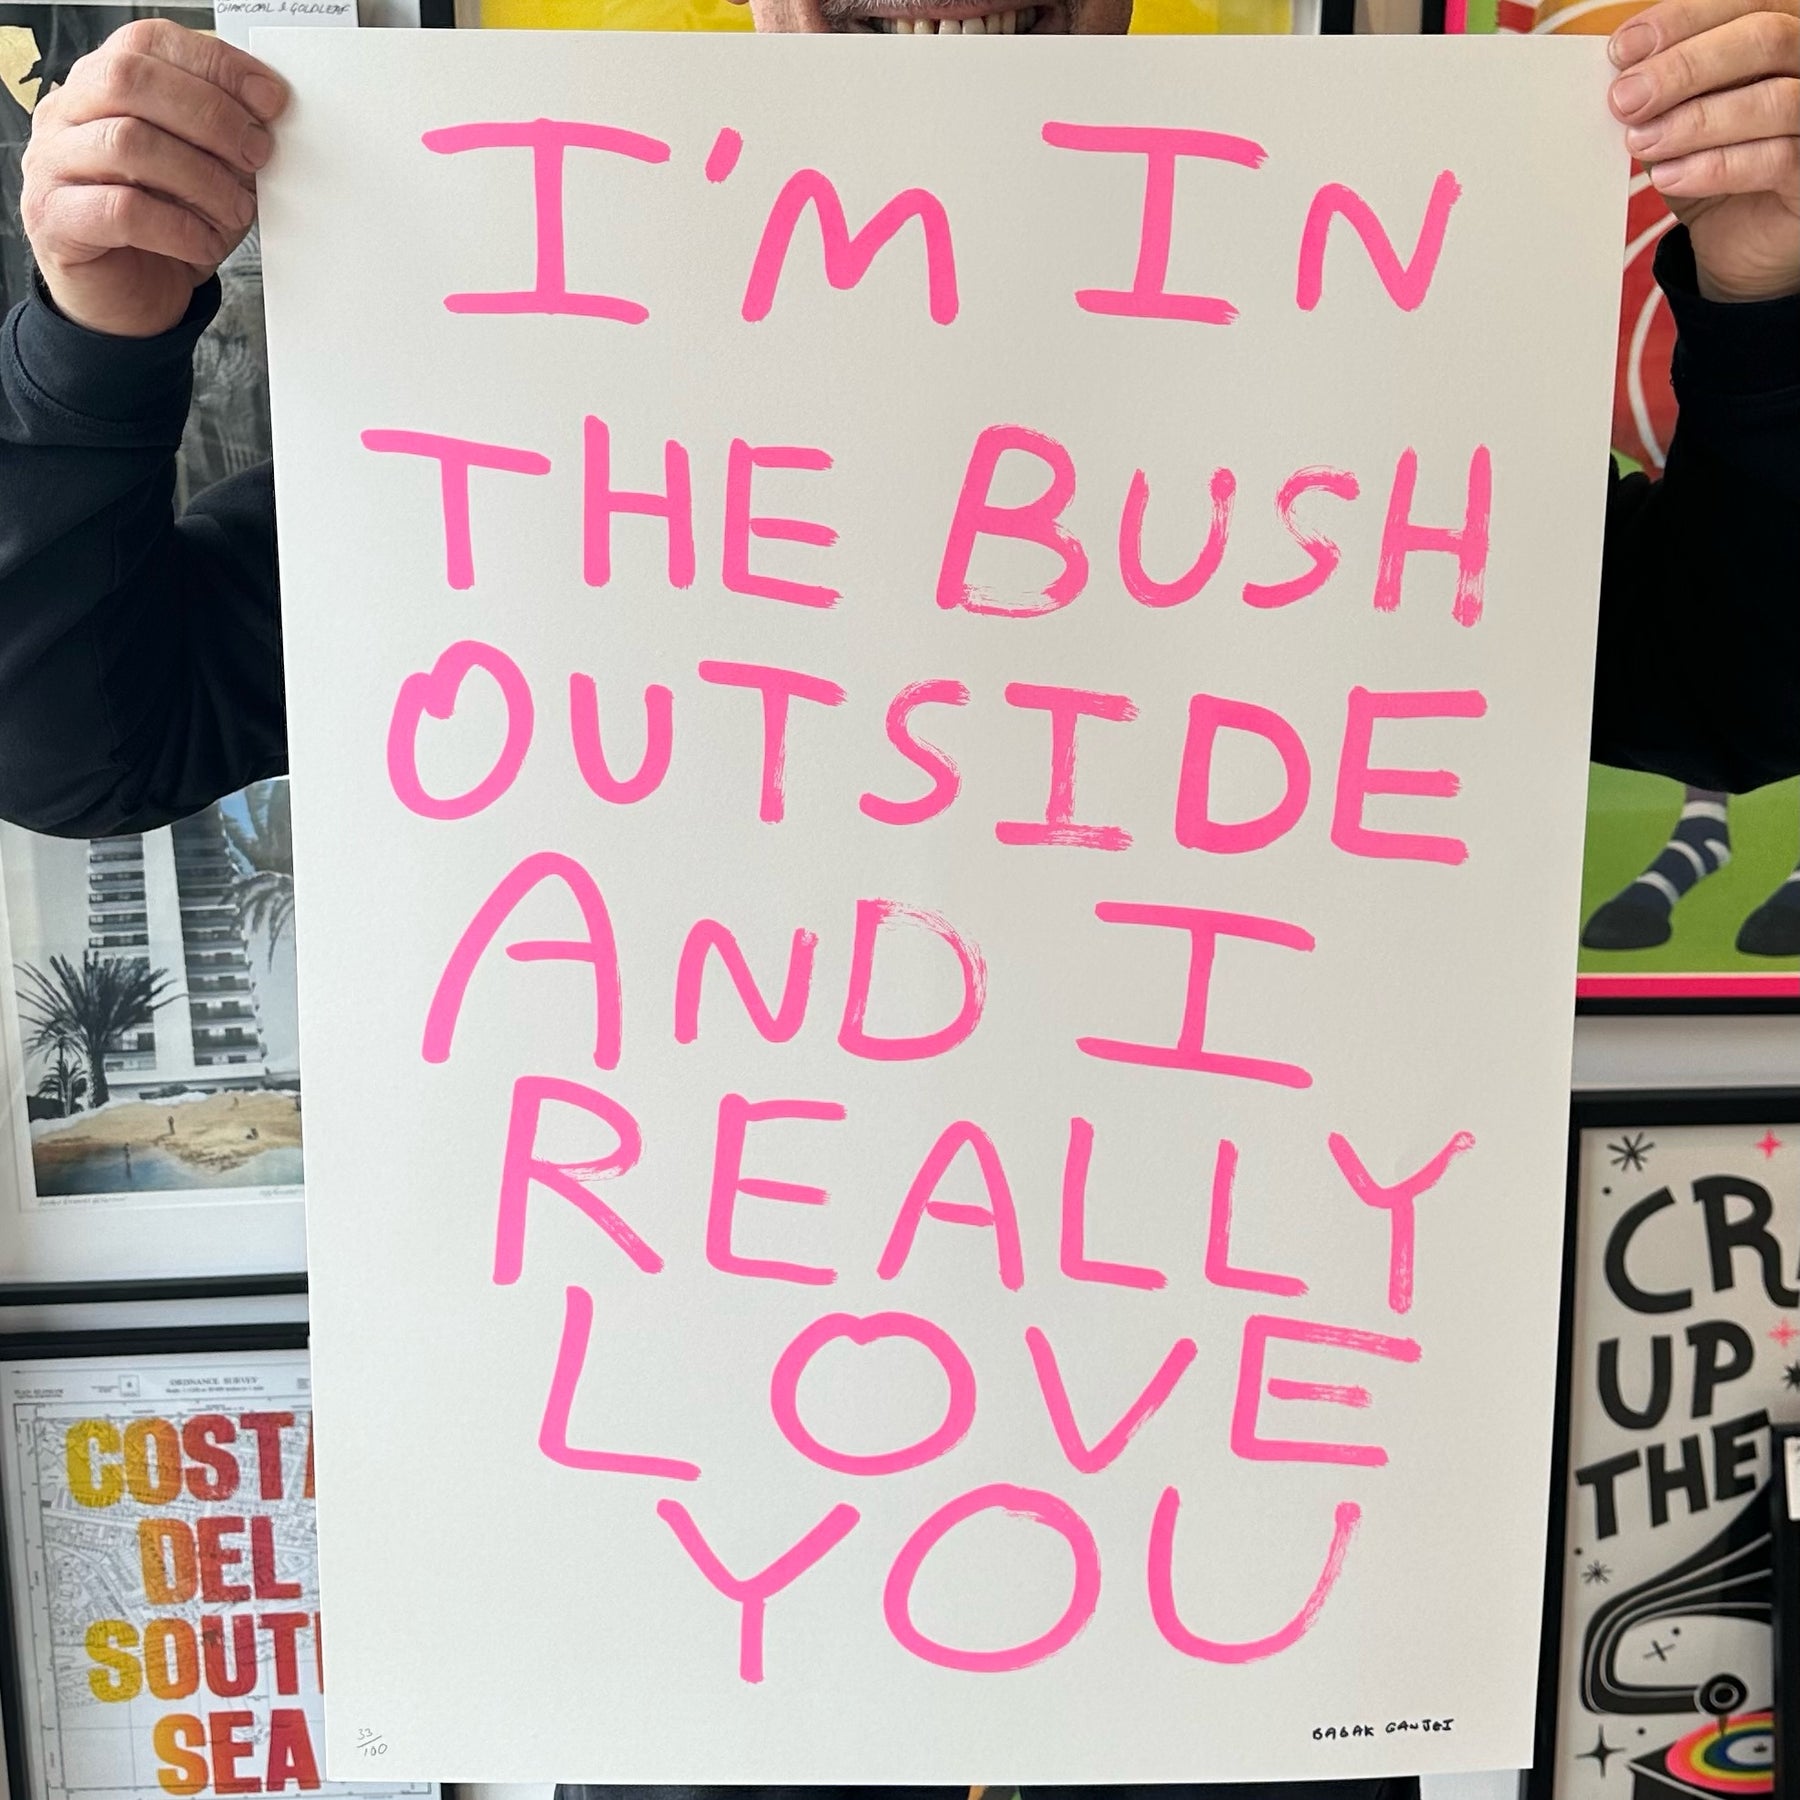 CHARCOAL & GOLDLEAF
I'M IN
THE BUSH
OUTSIDE
AND I
REALLY
LOVE
YOU
33/100
BABAK GANJEI
ORDNANCE SURVEY
COSTA
DEL
SOUTH
SEA
CRA
UP
THE